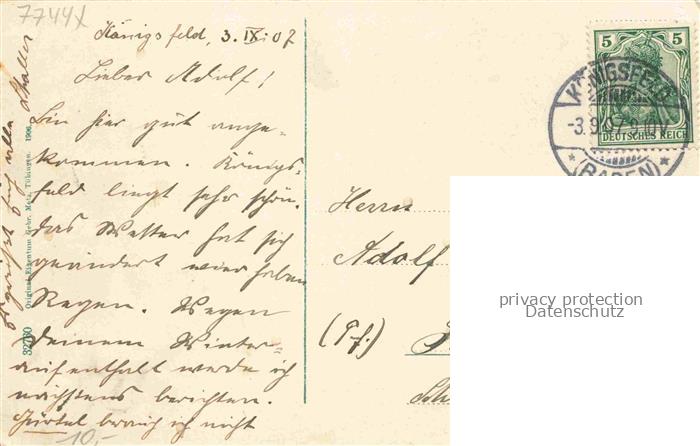 7744X
Königsfeld, 3. IX. 07
Lieber Adolf!
Bin hier gut ange-
kommen. Königs-
feld liegt sehr schön.
das Wetter hat sich
geändert wir haben
Regen. Wegen
deinem Winter-
aufenthalt werde ich
nächstens berichten.
Gürtel brauch ich nicht
10,-
Es grüßt Euch alle
32760
Original-Eigentum Gebr. Metz, Tübingen. 1906.
5 5
DEUTSCHES REICH
KÖNIGSFELD
-3.9.07.
(BADEN)
Herrn
Adolf
(Pf.)
privacy protection
Datenschutz